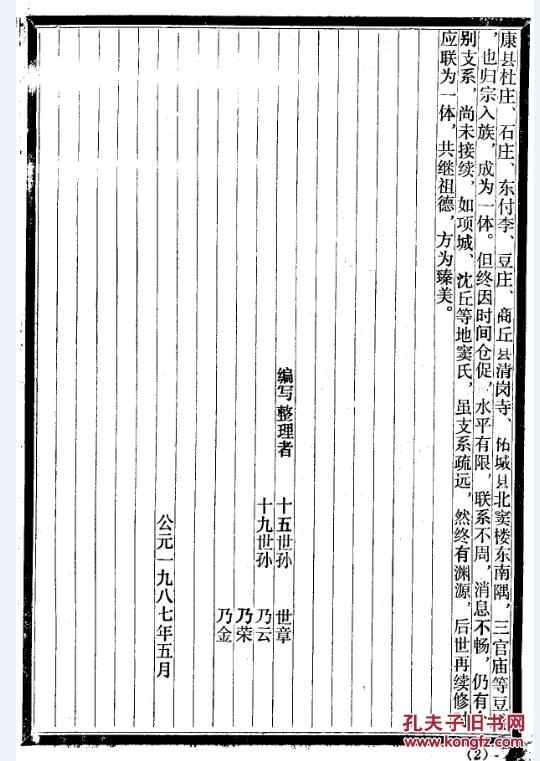 康县杜庄、石庄、东付李、豆庄、商丘县清岗寺、柘城县北窦楼东南隅，三官庙等豆
，也归宗入族，成为一体。但终因时间仓促，水平有限，联系不周，消息不畅，仍有
别支系，尚未接续，如项城、沈丘等地窦氏，虽支系疏远，然终有渊源，后世再续修
应联为一体，共继祖德，方为臻美。
编写整理者 十五世孙 世章
十九世孙 乃云
乃荣
乃金
公元一九八七年五月
(2)
孔夫子旧书网
www.kongfz.com